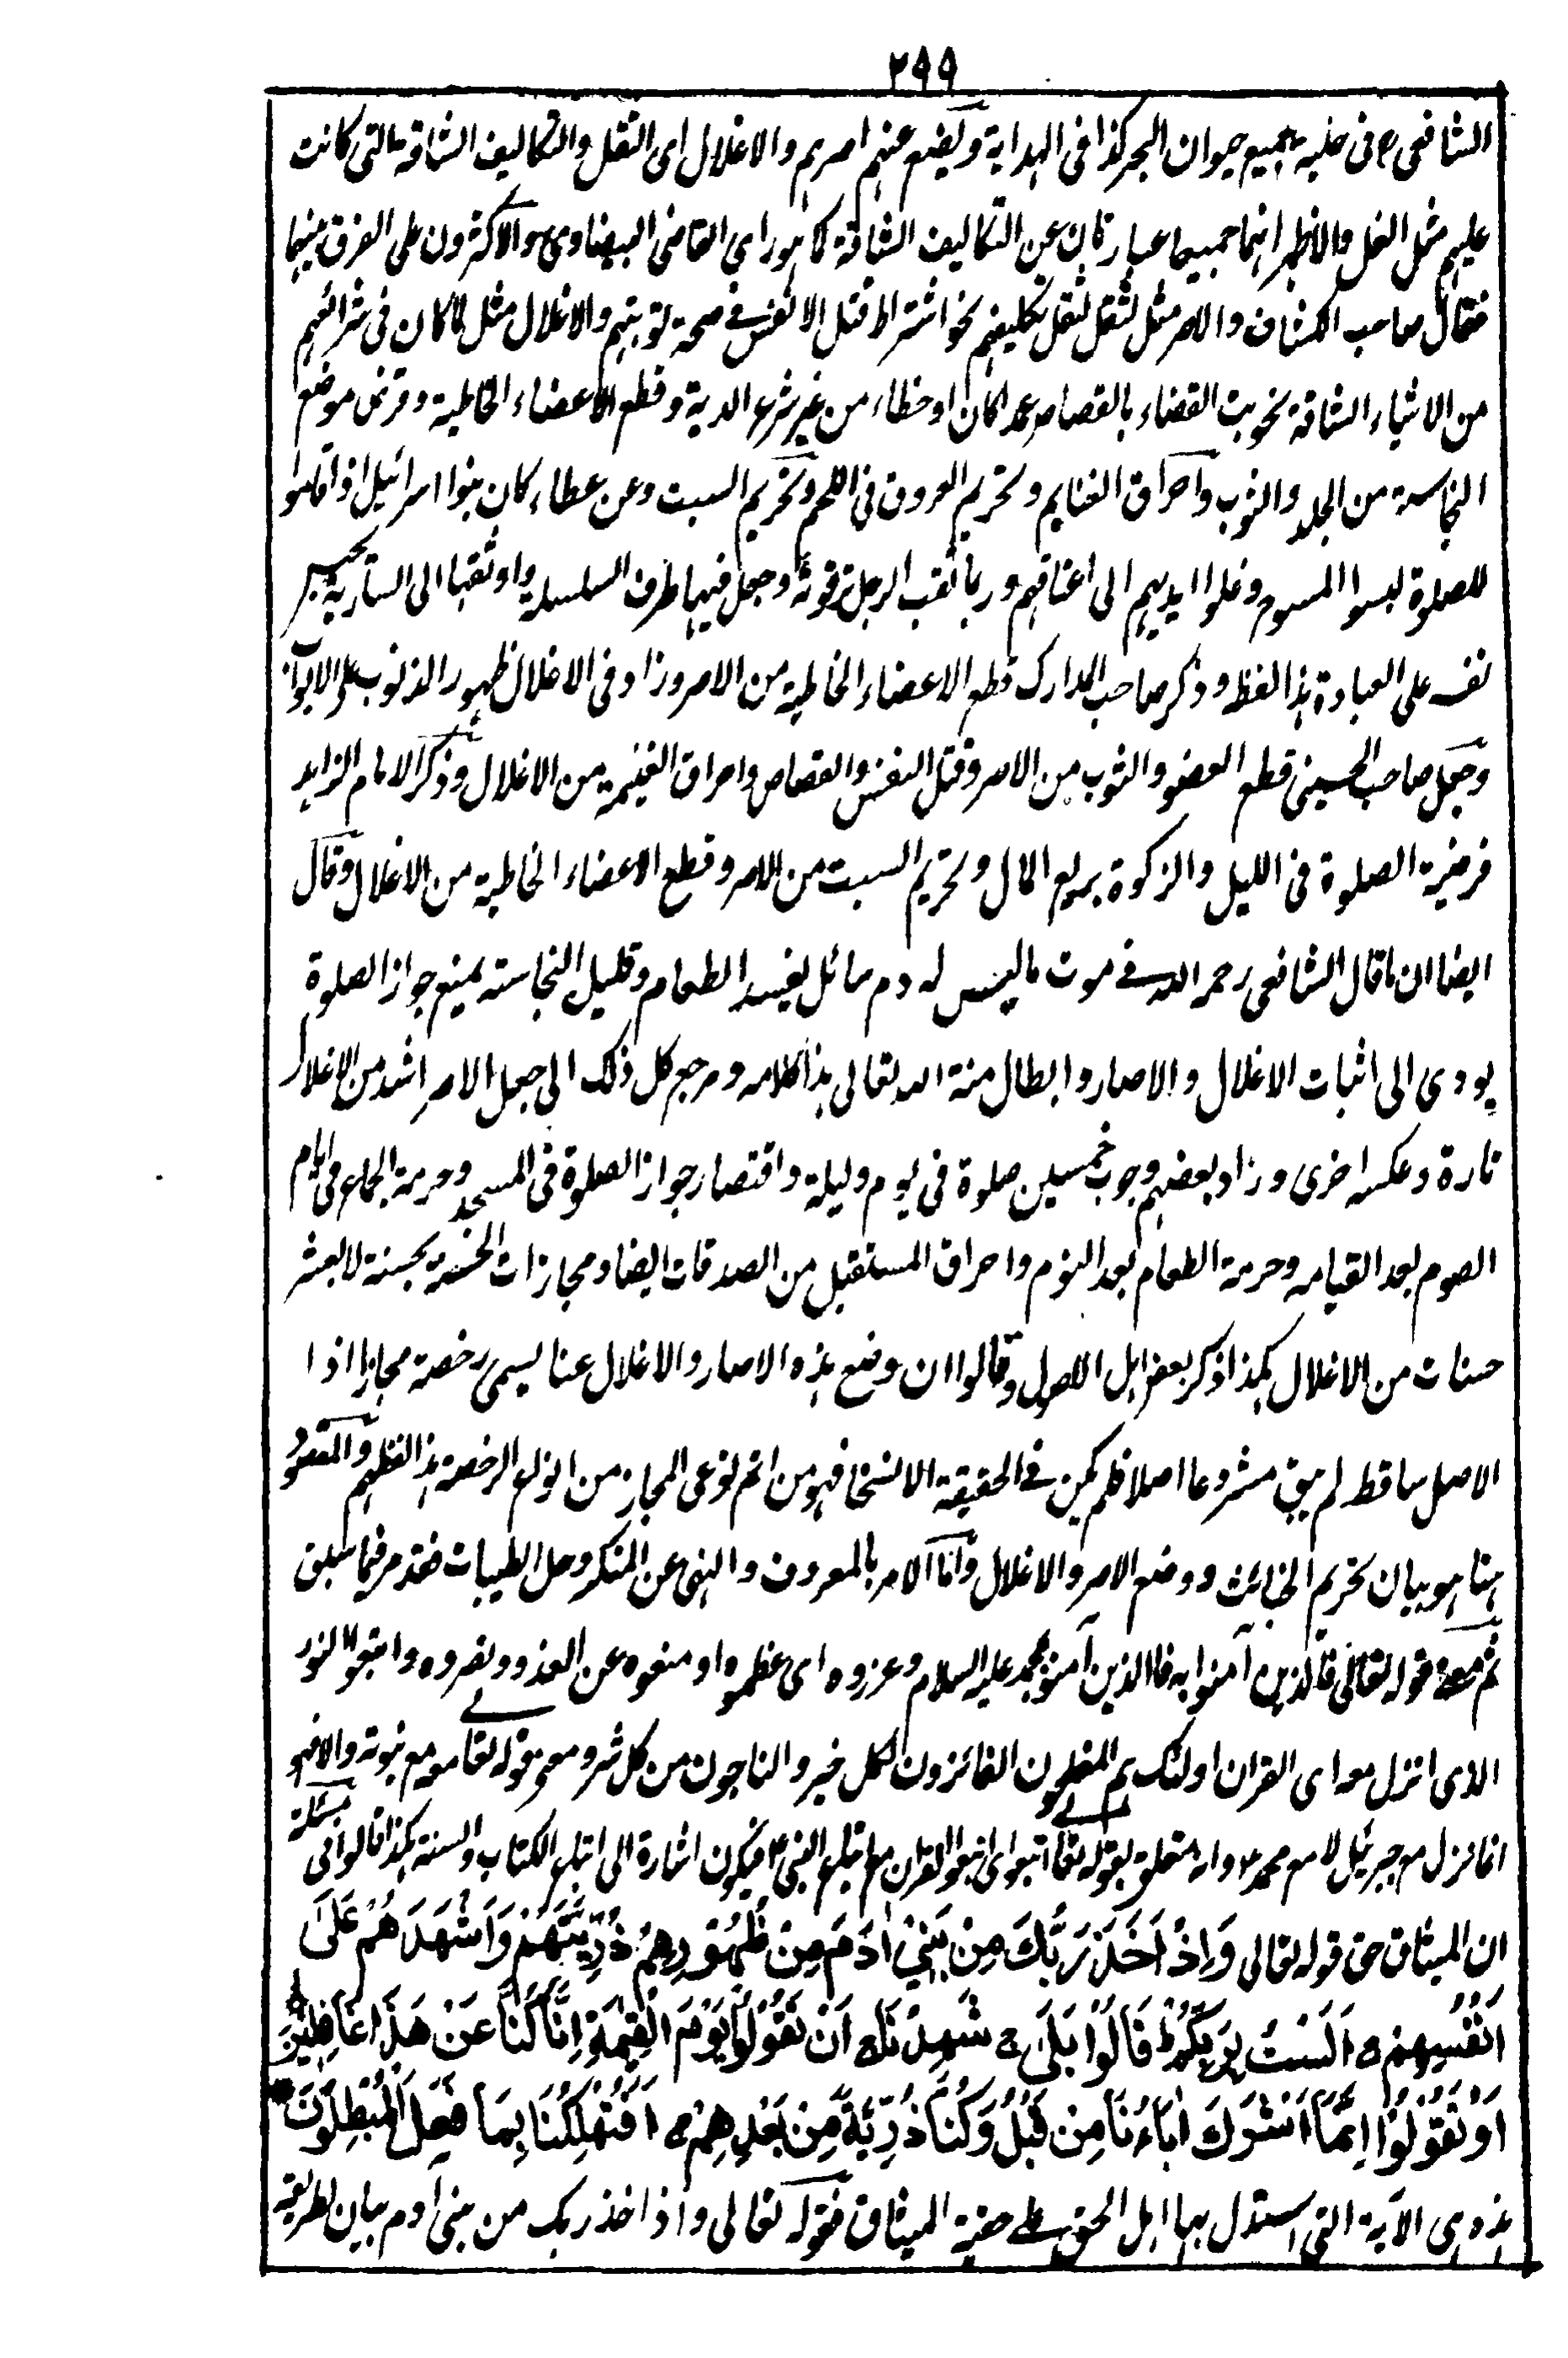 ٢٩٩
الشافعي رح في حله جميع حيوان البحر كذا في الهداية ويضع عنهم اصرهم والاغلال اى الثقل والتكاليف الشاقة التي كانت
عليهم مثل الغل والاظهر انهما جميعا عبارتان عن التكاليف الشاقة كما هو راى القاضى البيضاوى والاكثرون على الفرق بينهما
فقال صاحب الكشاف والاصر مثل لثقل تكليفهم نحو اشتراط قتل الانفس في صحة توبتهم والاغلال مثل لما كان في شرائعهم
من الاشياء الشاقة نحو بت القضاء بالقصاص عمدا كان او خطاء من غير شرع الدية وقطع الاعضاء الخاطية وقرض موضع
النجاسة من الجلد والثوب واحراق الغنايم وتحريم العروق في اللحم وتحريم السبت وعن عطاء كان بنوا اسرائيل اذا قاموا
للصلوة لبسوا المسوح وغلوا ايديهم الى اعناقهم وربما ثقب الرجل ترقوته وجعل فيها طرف السلسلة واوثقها الى السارية يحبس
نفسه على العبادة هذا لفظه وذكر صاحب المدارك قطع الاعضاء الخاطية من الاصر وزاد في الاغلال ظهور الذنوب على الابواب
وجعل صاحب الحسينى قطع العضو والثوب من الاصر وقتل النفس والقصاص واحراق الغنيمة من الاغلال وذكر الامام الزاهد
فرضية الصلوة في الليل والزكوة بربع المال وتحريم السبت من الاصر وقطع الاعضاء الخاطية من الاغلال وقال
ايضا ان ما قال الشافعي رحمه الله في موت ما ليس له دم سائل يفسد الطعام وقليل النجاسة يمنع جواز الصلوة
يودى الى اثبات الاغلال والاصار وابطال منة الله تعالى هذا كلامه ومرجع كل ذلك الى جعل الاصر اشد من الاغلال
تارة وعكسه اخرى وزاد بعضهم وجوب خمسين صلوة في يوم وليلة واقتصار جواز الصلوة في المسجد وحرمة الجماع في ايام
الصوم بعد القيامه وحرمة الطعام بعد النوم واحراق المستقبل من الصدقات ايضا ومجازات الحسنة بحسنة لا بعشر
حسنات من الاغلال هكذا ذكر بعض اهل الاصول وقالوا ان وضع هذه الاصار والاغلال عنا يسمى رخصة مجازا اذا
الاصل ساقط لم يبق مشروعا اصلا فلم يكن في الحقيقة الا نسخا فهو من اتم نوعى المجاز من انواع الرخصة هذا لفظهم والمقصود
هنا هو بيان تحريم الخبائث ووضع الاصر والاغلال واما الامر بالمعروف والنهى عن المنكر وحل الطيبات فقد مر فيما سبق
ثم معنى قوله تعالى فالذين آمنوا به فالذين آمنوا بمحمد عليه السلام وعزروه اى عظموه او منعوه عن العدو ونصروه واتبعوا النور
الذى انزل معه اى القران اولئك هم المفلحون الفائزون لكل خير والناجون من كل شر ومعنى قوله تعالى معه مع نبوته والا فهو
انما نزل مع جبرئيل لا مع محمد او انه متعلق بقوله تعالى اتبعوا اى اتبعوا القران مع اتباع النبي فيكون اشارة الى اتباع الكتاب والسنة هكذا قالوا في مسئلة
ان الميثاق حق قوله تعالى وَاِذْ اَخَذَ رَبُّكَ مِنْ بَنِيْ اٰدَمَ مِنْ ظُهُوْرِهِمْ ذُرِّيَّتَهُمْ وَاَشْهَدَهُمْ عَلٰى
اَنْفُسِهِمْ اَلَسْتُ بِرَبِّكُمْ ط قَالُوْا بَلٰى ج شَهِدْنَا ج اَنْ تَقُوْلُوْا يَوْمَ الْقِيٰمَةِ اِنَّا كُنَّا عَنْ هٰذَا غَافِلِيْنَ
اَوْ تَقُوْلُوْا اِنَّمَا اَشْرَكَ اٰبَاءُنَا مِنْ قَبْلُ وَكُنَّا ذُرِّيَّةً مِنْ بَعْدِهِمْ ج اَفَتُهْلِكُنَا بِمَا فَعَلَ الْمُبْطِلُوْنَ
هذه هى الآية التي استدل بها اهل الحق على حقية الميثاق فقوله تعالى واذ اخذ ربك من بنى آدم بيان لطريقة